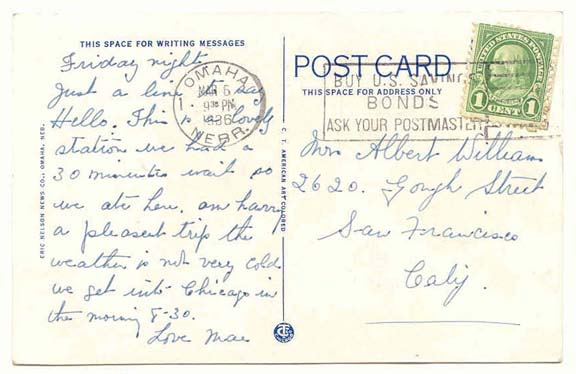 THIS SPACE FOR WRITING MESSAGES
Friday night
Just a line to say
Hello. This is a lovely
station we had a
30 minutes wait so
we ate here, am having
a pleasent trip the
weather is not very cold
we get into Chicago in
the morning 8-30.
Love Mae
ERIC NELSON NEWS CO., OMAHA, NEB.
C. T. AMERICAN ART COLORED
OMAHA
MAR 6
1
9 30 PM
1936
NEBR.
POST CARD
THIS SPACE FOR ADDRESS ONLY
BUY U.S. SAVINGS
BONDS
ASK YOUR POSTMASTER
UNITED STATES POSTAGE
1 CENT 1
Mrs Albert William
2620. Gough Street
San Francisco
Calif.